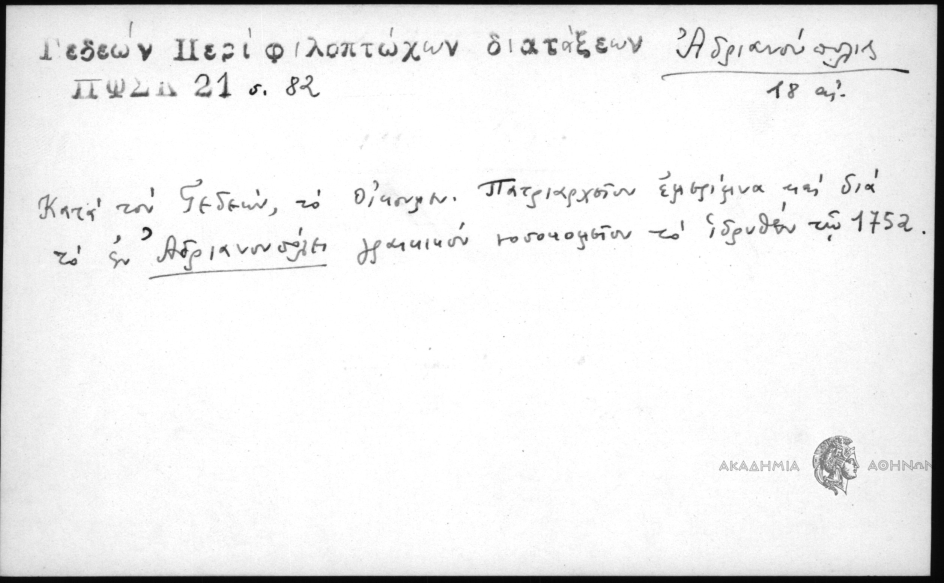 Γεδεών Περί φιλοπτώχων διατάξεων Ἀδριανούπολις
21 σ. 82 18 αἰ.
Κατά τον Γεδεών, τό Οἰκουμεν. Πατριαρχεῖον ἐμερίμνα καί διά
τό ἐν Ἀδριανουπόλει γραικικόν νοσοκομεῖον τό ἱδρυθέν τῷ 1752.
ΑΚΑΔΗΜΙΑ ΑΘΗΝΩΝ